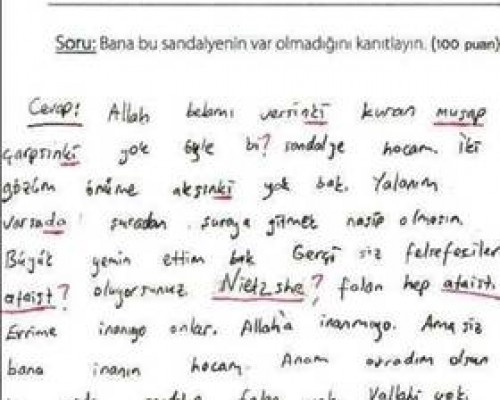 Soru: Bana bu sandalyenin var olmadığını kanıtlayın. (100 puan)
Cevap: Allah belamı versinki kuran muşap
çarpsınki yok öyle bi? sandalye hocam. İki
gözüm önüme aksınki yok bak. Yalanım
varsada şuradan şuraya gitmek nasip olmasın.
Büyük yemin ettim bak Gerçi siz felsefeciler
ateist? oluyorsunuz Nietzshe? falan hep ateist.
Evrime inanıyo onlar. Allah'a inanmıyo. Ama siz
bana inanın hocam. Anam avradım olsun
falan yok. Vallahi yok.